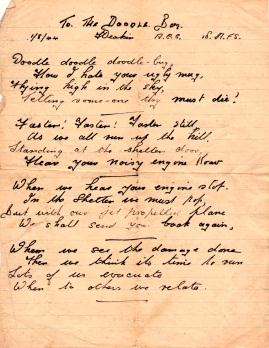 To The Doodle Bug.
1/8/44 Deakin
Doodle doodle doodle-bug,
How I hate your ugly mug,
Flying high in the sky,
Telling someone they must die!
Faster! Faster! Faster still
As we all run up the hill
Standing at the shelter door,
Hear your noisy engine Roar
When we hear your engine stop.
In the shelter we must pop,
But with our jet propelled plane
We shall send you back again,
When we see the damage done
Then we think its time to run
Lots of us evacuate
When to others we relate.